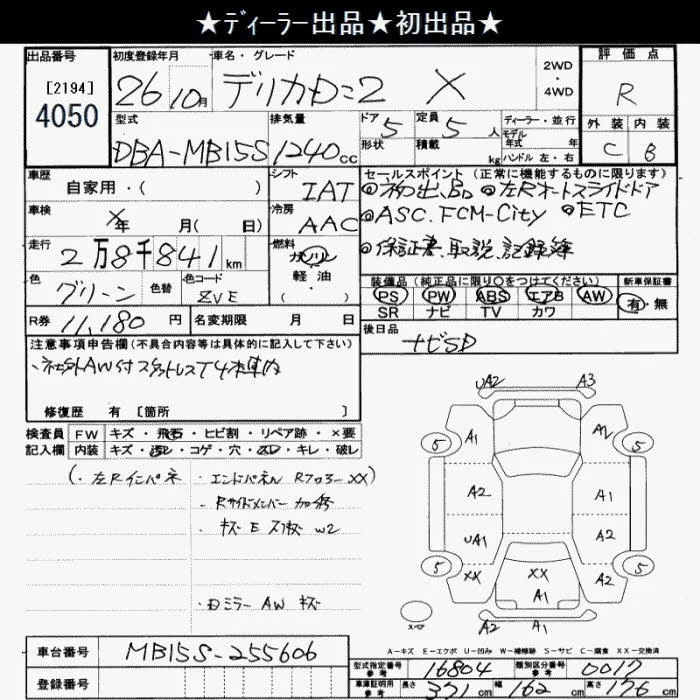 ★ディーラー出品★初出品★
出品番号
[2194]
4050
初度登録年月
26 10月
車名・グレード
デリカD:2 X
2WD
・
4WD
評価点
R
外装 内装
C B
型式
DBA-MB15S
排気量
1240cc
ドア 5
形状
定員 5 人
積載 kg
ディーラー・並行
モデル
年式 年
ハンドル 左・右
車歴
自家用・( )
シフト
IAT
車検
年 月( 日)
冷房
AAC
走行
2万8千841km
燃料
ガソリン
軽油
・( )
色
グリーン
色替
色コード
ZVE
R券 11,180 円
名変期限 月 日
セールスポイント (正常に機能するものに限ります)
◎初出品 ◎左Rオートスライドドア
◎ASC.FCM-City ◎ETC
◎保証書.取説.記録簿
装備品 (純正品に限り○をつけてください)
PS PW ABS エアB AW
SR ナビ TV カワ
新車保証書
有・無
後日品
ナビSD
注意事項申告欄(不具合内容等は具体的に記入して下さい)
・社外AW付スタットレスT4本車内
修復歴 有 [箇所 ]
検査員 FW キズ・飛石・ヒビ割・リペア跡・×要
記入欄 内装 キズ・汚レ・コゲ・穴・スレ・キレ・破レ
(・左Rインパネ ・エンドパネル Rフロアー XX)
・Rサイドメンバー 加修
・キズ E スリキズ W2
・Dミラー AW キズ
UA2 A3
5 A1 A2 5
A2 A1
UA1 A2
5 XX XX A2 5
A1
A2 A1
スペア
A-キズ E-エクボ U-凹み W-補修跡 S-サビ C-腐食 XX-交換済
車台番号 MB15S-255606
登録番号
型式指定番号
参考
16804
類別区分番号
参考
0017
車庫証明用
参考
長さ 371 cm 幅 162 cm 高さ 176 cm